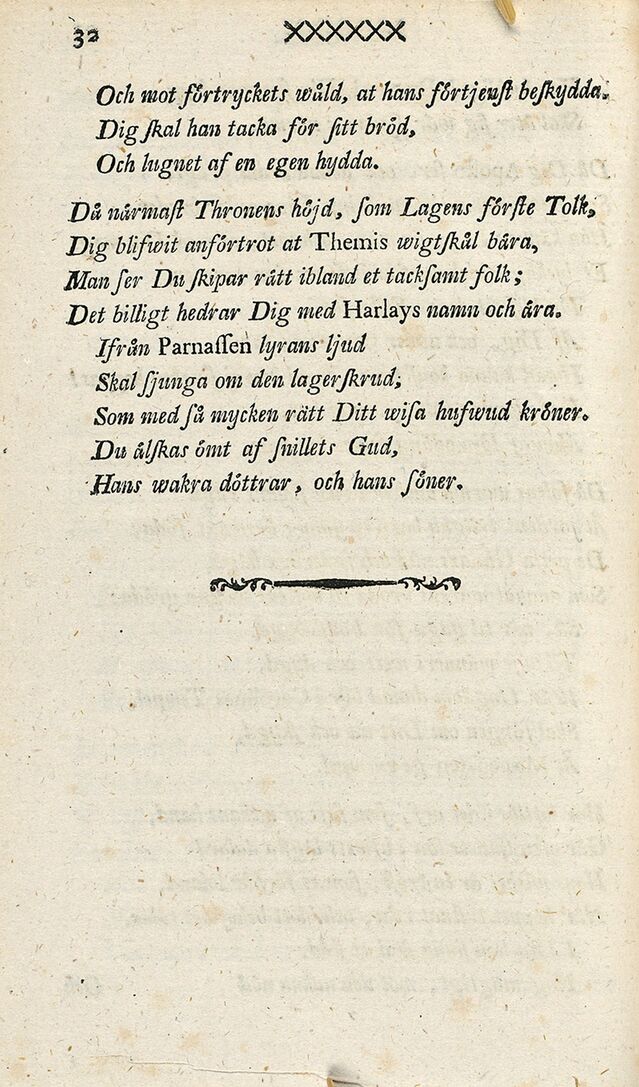 32 XXXXXX
Och mot förtryckets wåld, at hans förtjenſt beſkydda.
Dig ſkal han tacka för ſitt bröd,
Och lugnet af en egen hydda.
Då närmaſt Thronens höjd, ſom Lagens förſte Tolk,
Dig blifwit anförtrot at Themis wigtſkål bära,
Man ſer Du ſkipar rätt ibland et tackſamt folk;
Det billigt hedrar Dig med Harlays namn och ära.
Ifrån Parnaſſen lyrans ljud
Skal ſjunga om den lagerſkrud,
Som med ſå mycken rätt Ditt wiſa hufwud kröner.
Du älſkas ömt af ſnillets Gud,
Hans wakra döttrar, och hans ſöner.